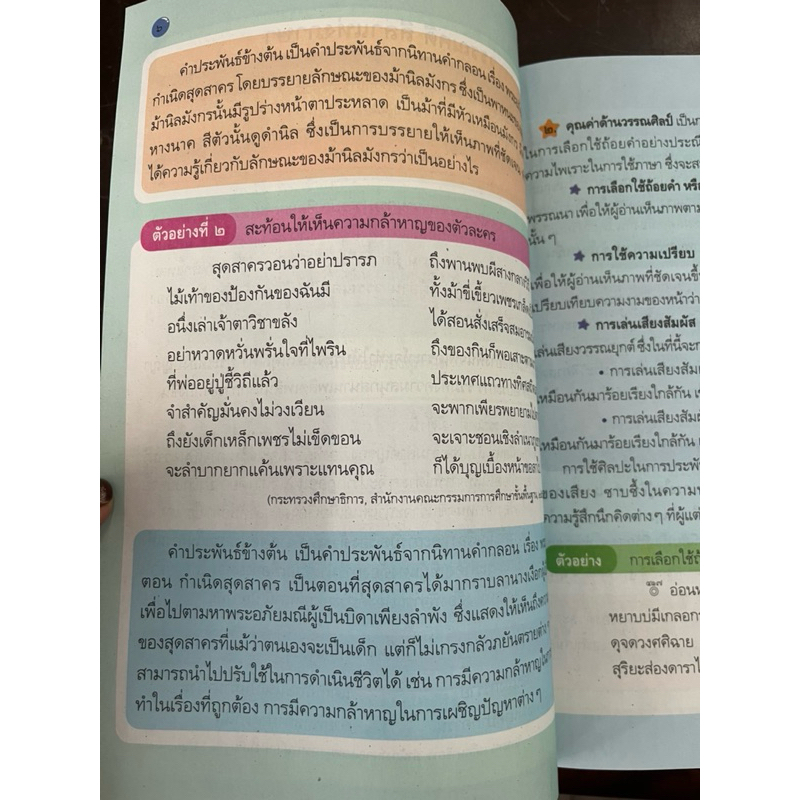 ๖
คำประพันธ์ข้างต้น เป็นคำประพันธ์จากนิทานคำกลอน เรื่อง
กำเนิดสุดสาคร โดยบรรยายลักษณะของม้านิลมังกร ซึ่งเป็นพาหนะ
ม้านิลมังกรนั้นมีรูปร่างหน้าตาประหลาด เป็นม้าที่มีหัวเหมือนมังกร
หางนาค สีตัวนั้นดูดำนิล ซึ่งเป็นการบรรยายให้เห็นภาพที่ชัดเจน
ได้ความรู้เกี่ยวกับลักษณะของม้านิลมังกรว่าเป็นอย่างไร
ตัวอย่างที่ ๒ สะท้อนให้เห็นความกล้าหาญของตัวละคร
สุดสาครวอนว่าอย่าปรารภ ถึงพานพบผีสางกลาง
ไม้เท้าของป้องกันของฉันมี ทั้งม้าขี่เขี้ยวเพชร
อนึ่งเล่าเจ้าตาวิชาขลัง ได้สอนสั่งเสร็จสม
อย่าหวาดหวั่นพรั่นใจที่ไพริน ถึงของกินก็พอเสาะ
ที่พ่ออยู่ปู่ชี้วิถีแล้ว ประเทศแถวทางทิศ
จำสำคัญมั่นคงไม่วงเวียน จะพากเพียรพยายาม
ถึงยังเด็กเหล็กเพชรไม่เข็ดขอน จะเจาะชอนเชิงลำเนา
จะลำบากยากแค้นเพราะแทนคุณ ก็ได้บุญเบื้องหน้า
(กระทรวงศึกษาธิการ, สำนักงานคณะกรรมการการศึกษาขั้นพื้นฐาน
คำประพันธ์ข้างต้น เป็นคำประพันธ์จากนิทานคำกลอน เรื่อง
ตอน กำเนิดสุดสาคร เป็นตอนที่สุดสาครได้มากราบลานางเงือก
เพื่อไปตามหาพระอภัยมณีผู้เป็นบิดาเพียงลำพัง ซึ่งแสดงให้เห็นถึง
ของสุดสาครที่แม้ว่าตนเองจะเป็นเด็ก แต่ก็ไม่เกรงกลัวภยันตรายต่าง ๆ
สามารถนำไปปรับใช้ในการดำเนินชีวิตได้ เช่น การมีความกล้าหาญ
ทำในเรื่องที่ถูกต้อง การมีความกล้าหาญในการเผชิญปัญหาต่าง ๆ
๒. คุณค่าด้านวรรณศิลป์ เป็น
ในการเลือกใช้ถ้อยคำอย่างประณี
ความไพเราะในการใช้ภาษา ซึ่งจะส
การเลือกใช้ถ้อยคำ หรื
พรรณนา เพื่อให้ผู้อ่านเห็นภาพตาม
นั้น ๆ
การใช้ความเปรียบ
เพื่อให้ผู้อ่านเห็นภาพที่ชัดเจนขึ้
เปรียบเทียบความงามของหน้าว่า
การเล่นเสียงสัมผัส
เล่นเสียงวรรณยุกต์ ซึ่งในที่นี้จะก
• การเล่นเสียงสัม
เหมือนกันมาร้อยเรียงใกล้กัน
• การเล่นเสียงสัมผั
เหมือนกันมาร้อยเรียงใกล้กัน
การใช้ศิลปะในการประพั
ของเสียง ซาบซึ้งในความ
ความรู้สึกนึกคิดต่าง ๆ ที่ผู้แต่
ตัวอย่าง การเลือกใช้ถ้
อ่อนห
หยาบบ่มีเกลอก
ดุจดวงศศิฉาย
สุริยะส่องดาราไ